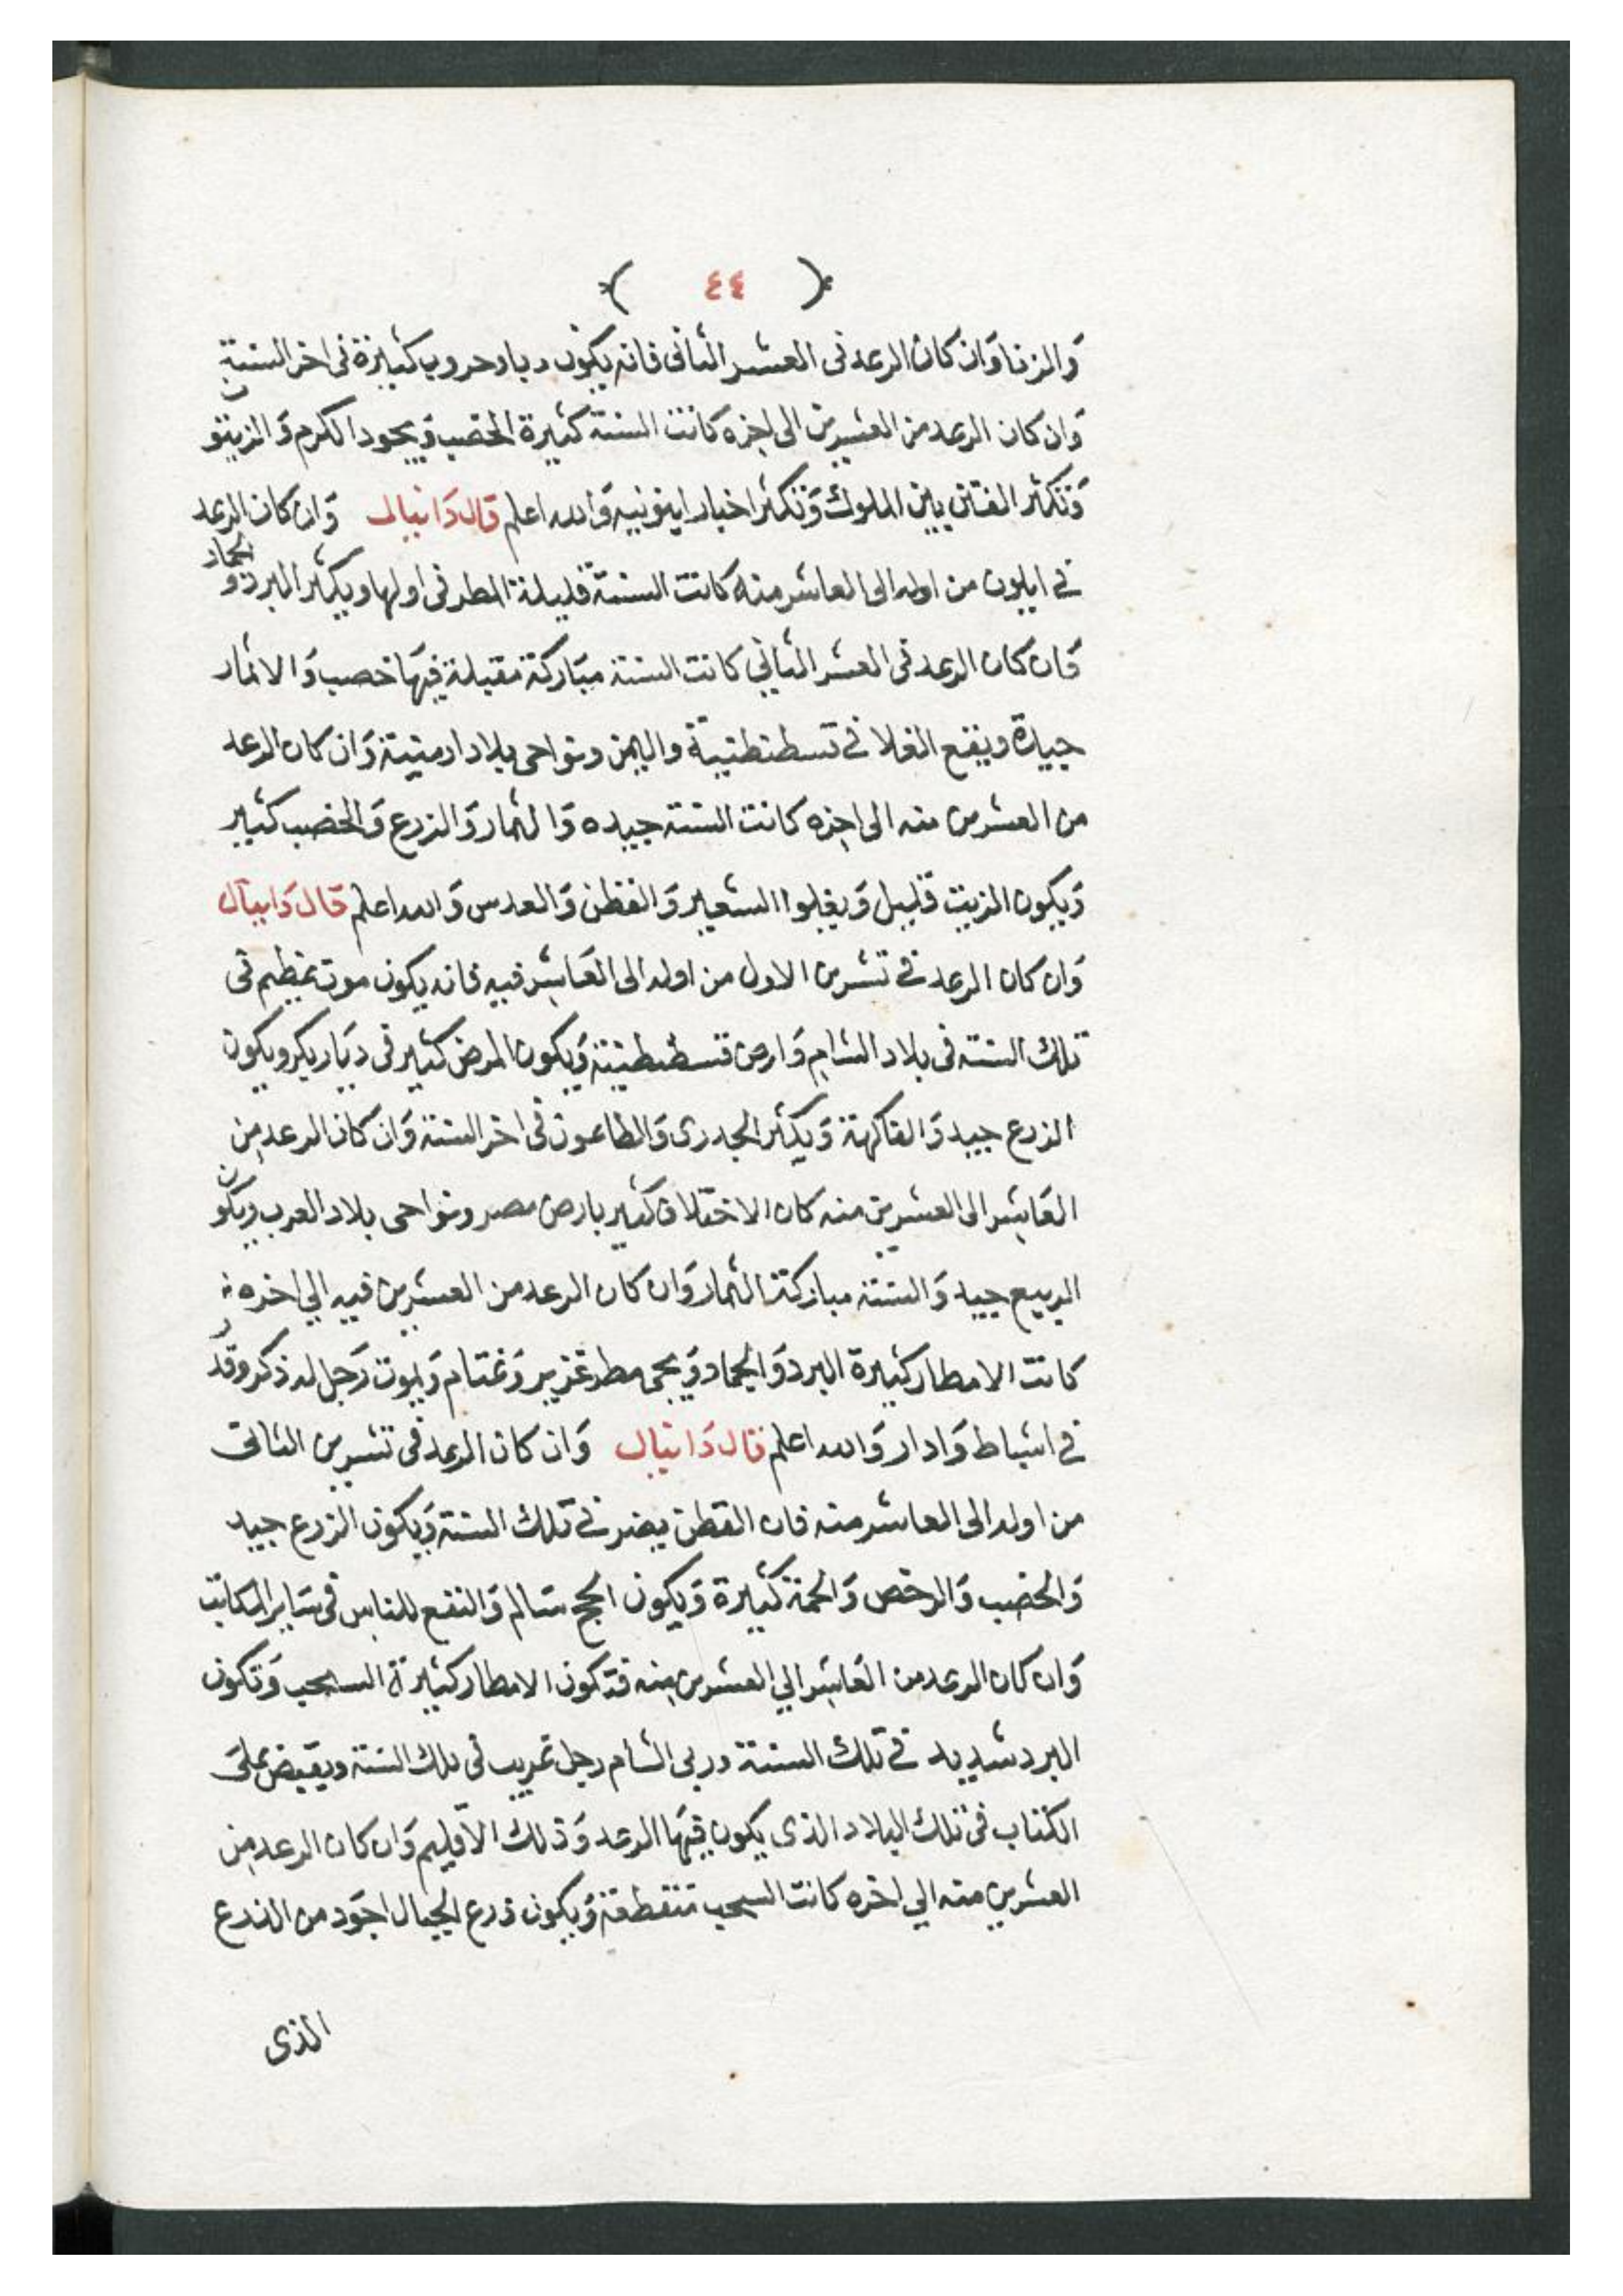 ٤٤
وَالزنا وَان كان الرعد فى العشر الثانى فانه يكون وبا وحروب كثيرة فى اخر السنة
وَان كان الرعد من العشرين الى اخره كانت السنة كثيرة الخصب وَيجود الكرم وَالزيتون
وَتكثر الفتن بين الملوك وَتكثر اخبار وَالله اعلم قال دَانيال وَان كان الرعد
في ايلون من اوله الى العاشر منه كانت السنة قليلة المطر فى اولها ويكثر البرد وَالجماد
وَان كان الرعد فى العشر الثاني كانت السنة مبَاركة مقبلة فيهَا خصب وَالاثمار
جيدة ويقع الغلا في قسطنطنيية واليمن ونواحى بلاد ارمنية وَان كان الرعد
من العشرين منه الى اخره كانت السنة جيده وَالثمار وَالزرع وَالخصب كثير
وَيكون الزيت قليل وَيغلوا الشعير وَالقطن وَالعدس وَالله اعلم قال دَانيال
وَان كان الرعد في تشرين الاول من اوله الى العَاشر فيه فانه يكون موت عظيم فى
تلك السنة فى بلاد الشام وَارض قسطنطينة وَيكون المرض كثير فى ديَار بكر ويكون
الزرع جيد وَالفاكهة وَيكثر الجدرى وَالطاعون فى اخر السنة وَان كان الرعد من
العَاشر الى العشرين منه كان الاختلاف كثير بارض مصر ونواحى بلاد العرب ويكون
الربيع جيد وَالسنة مباركة الثمار وَان كان الرعد من العشرين فيه الي اخره
كانت الامطار كثيرة البرد وَالجماد وَيجى مطر غزير وَغتام وَيموت رَجل له ذكر وقدر
في اشباط وَادار وَالله اعلم قال دَانيال وَان كان الرعد فى تشرين الثانى
من اوله الى العاشر منه فان القطن يضر في تلك السنة وَيكون الزرع جيد
وَالخصب وَالرخص وَالحمة كثيرة وَيكون الحج سَالم وَالنفع للناس فى سَاير المكانت
وَان كان الرعد من العَاشر الي العشرين منه فتكون الامطار كثيرة السحب وَتكون
البرد شديد في تلك السنة الشام رجل غريب فى تلك السنة ويقبض على
الكتاب فى تلك البلاد الذى يكون فيهَا الرعد وَذلك الاقليم وَان كان الرعد من
العشرين منه الي اخره كانت السحب متقطعة وَيكون زرع الجبال اجوَد من الزرع
الذى